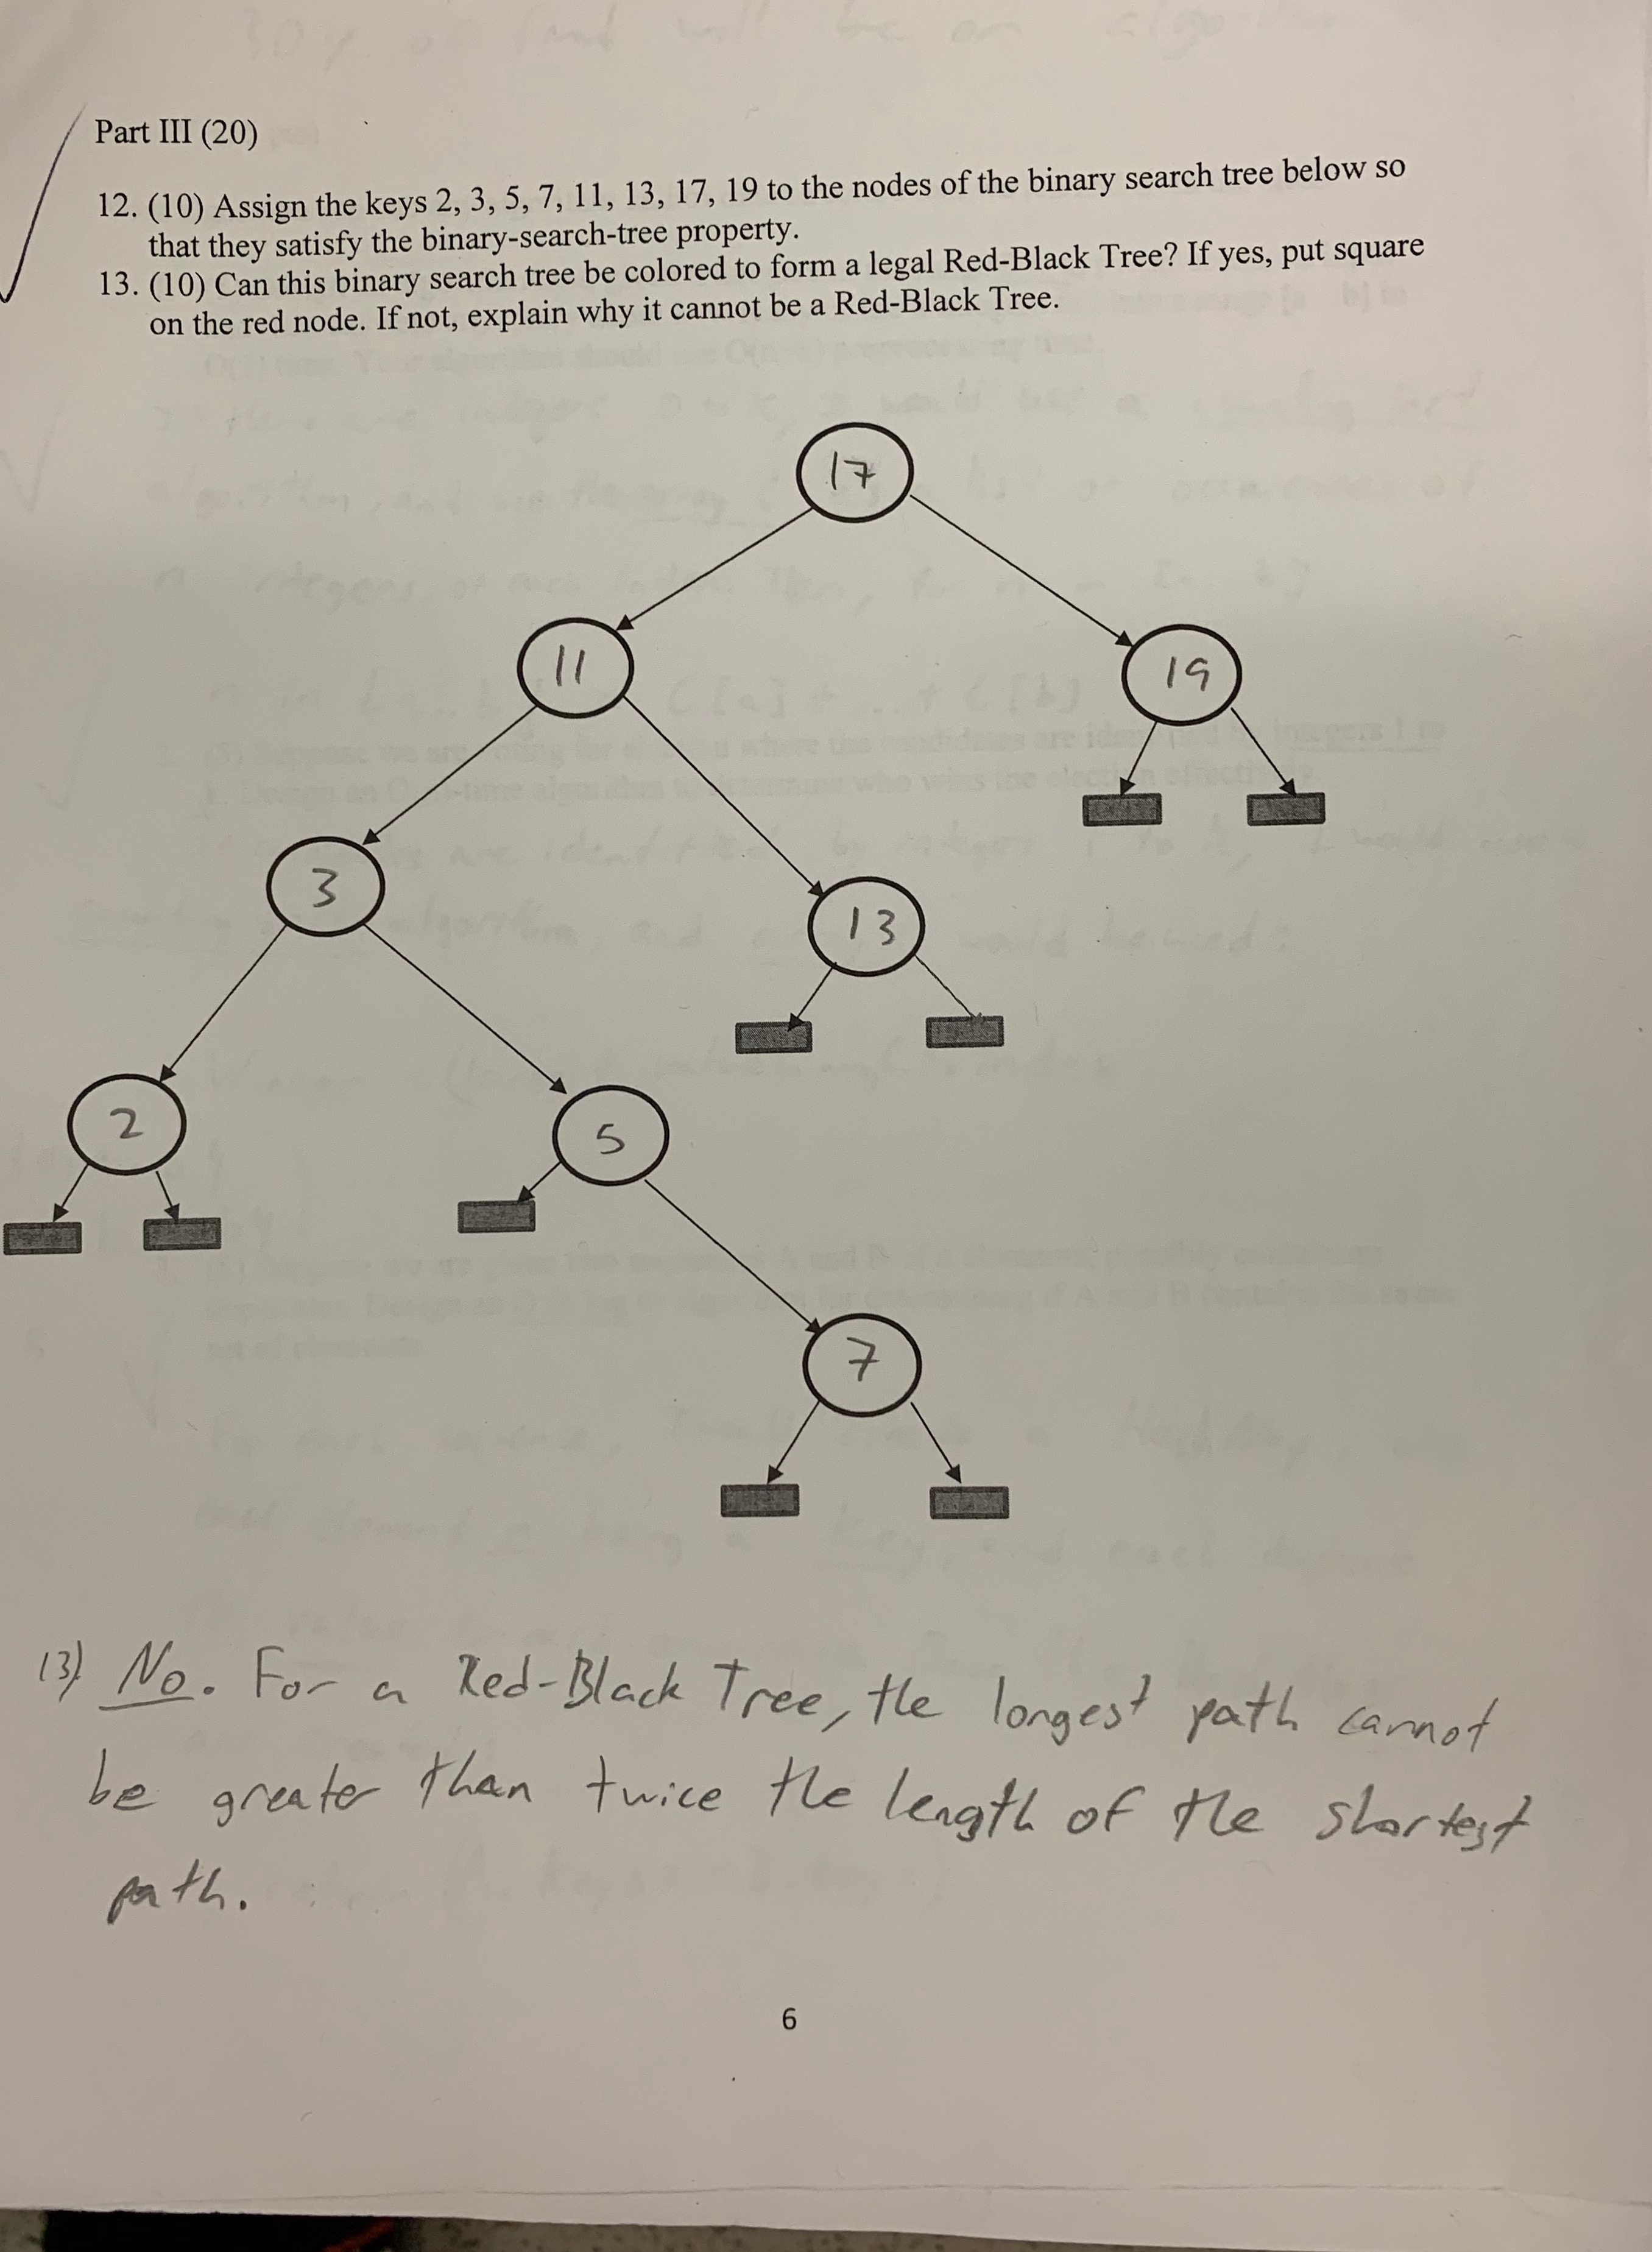 Part III (20)
12. (10) Assign the keys 2, 3, 5, 7, 11, 13, 17, 19 to the nodes of the binary search tree below so
that they satisfy the binary-search-tree property.
13. (10) Can this binary search tree be colored to form a legal Red-Black Tree? If yes, put square
on the red node. If not, explain why it cannot be a Red-Black Tree.
17
11
19
3
13
2
5
7
13) No. For a Red-Black Tree, the longest path cannot
be greater than twice the length of the shortest
path.
6